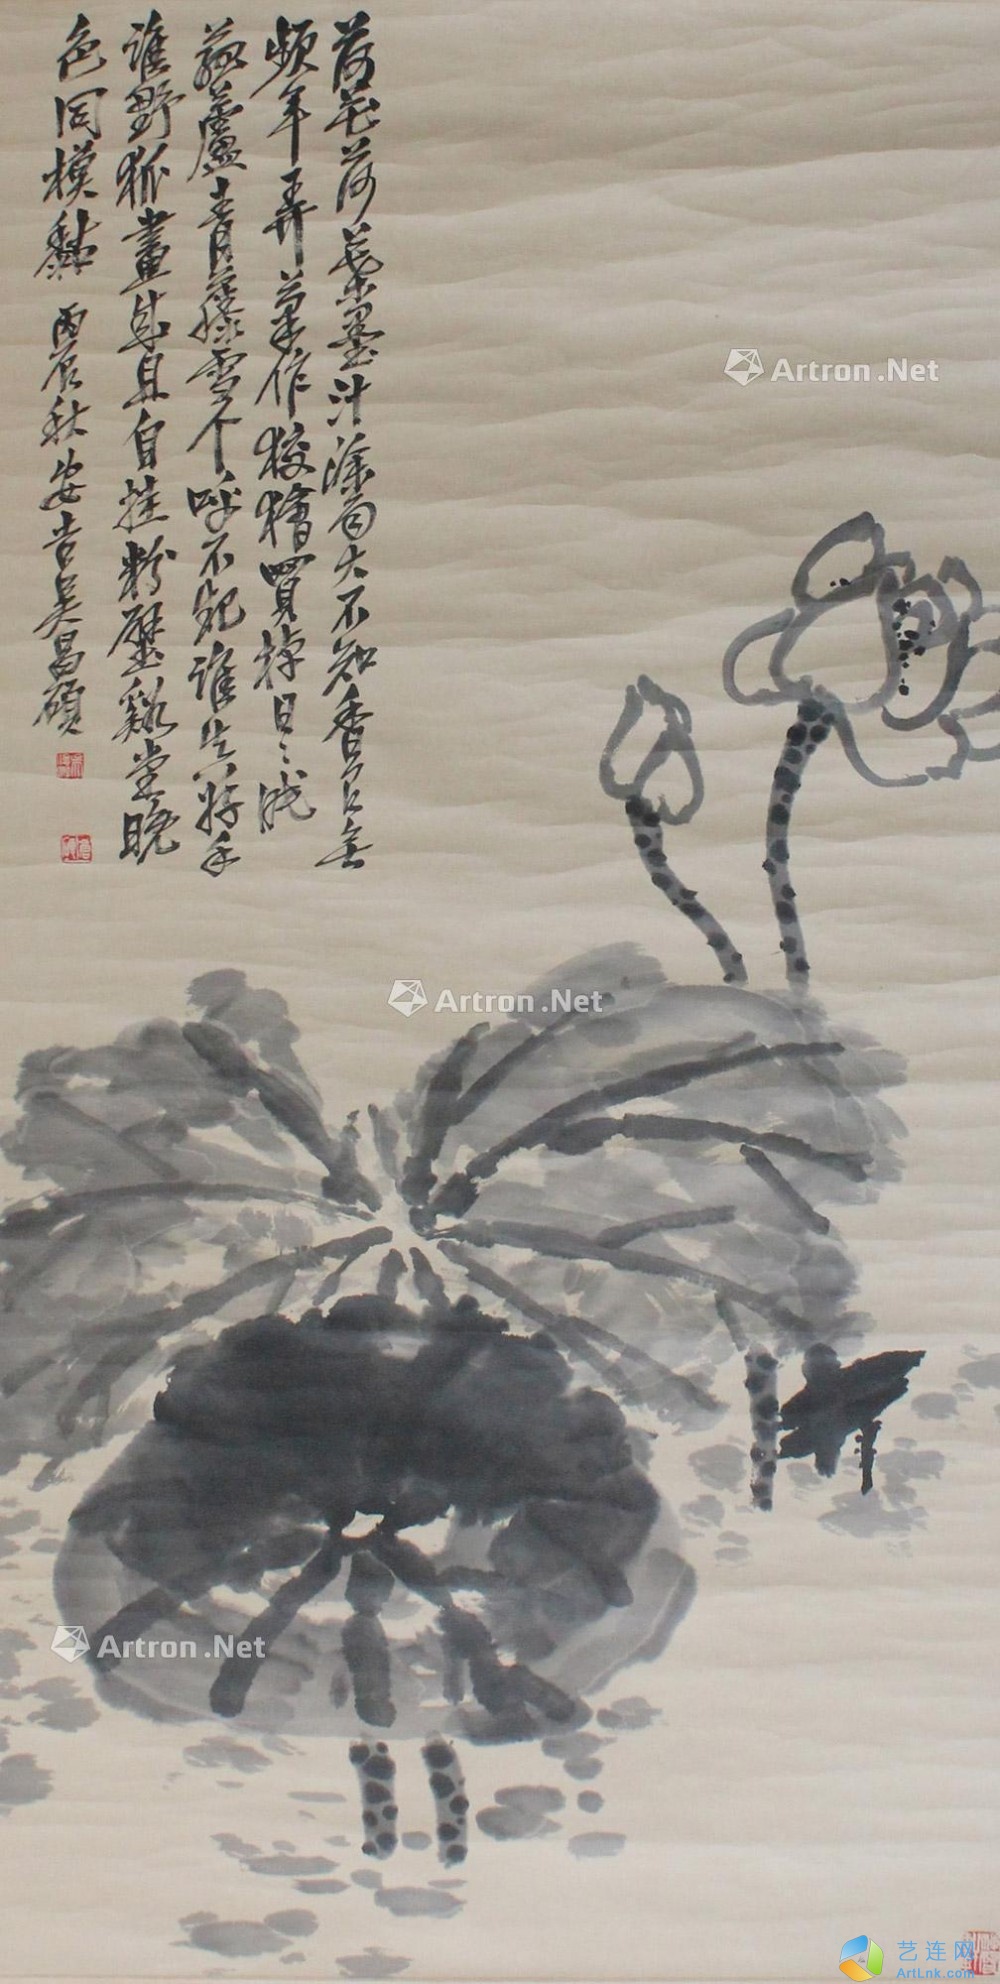 荷花荷葉墨汁塗雨大不知香有無
頻年弄筆作狡獪買棹日日眠
菰蘆青藤雪个呼不起誰真好手
誰野狐畫成且自挂粉壁溪堂晚
色同模黏 丙辰秋安吉吳昌碩
Artron.Net
Artron.Net
Artron.Net
艺连网
ArtLnk.com